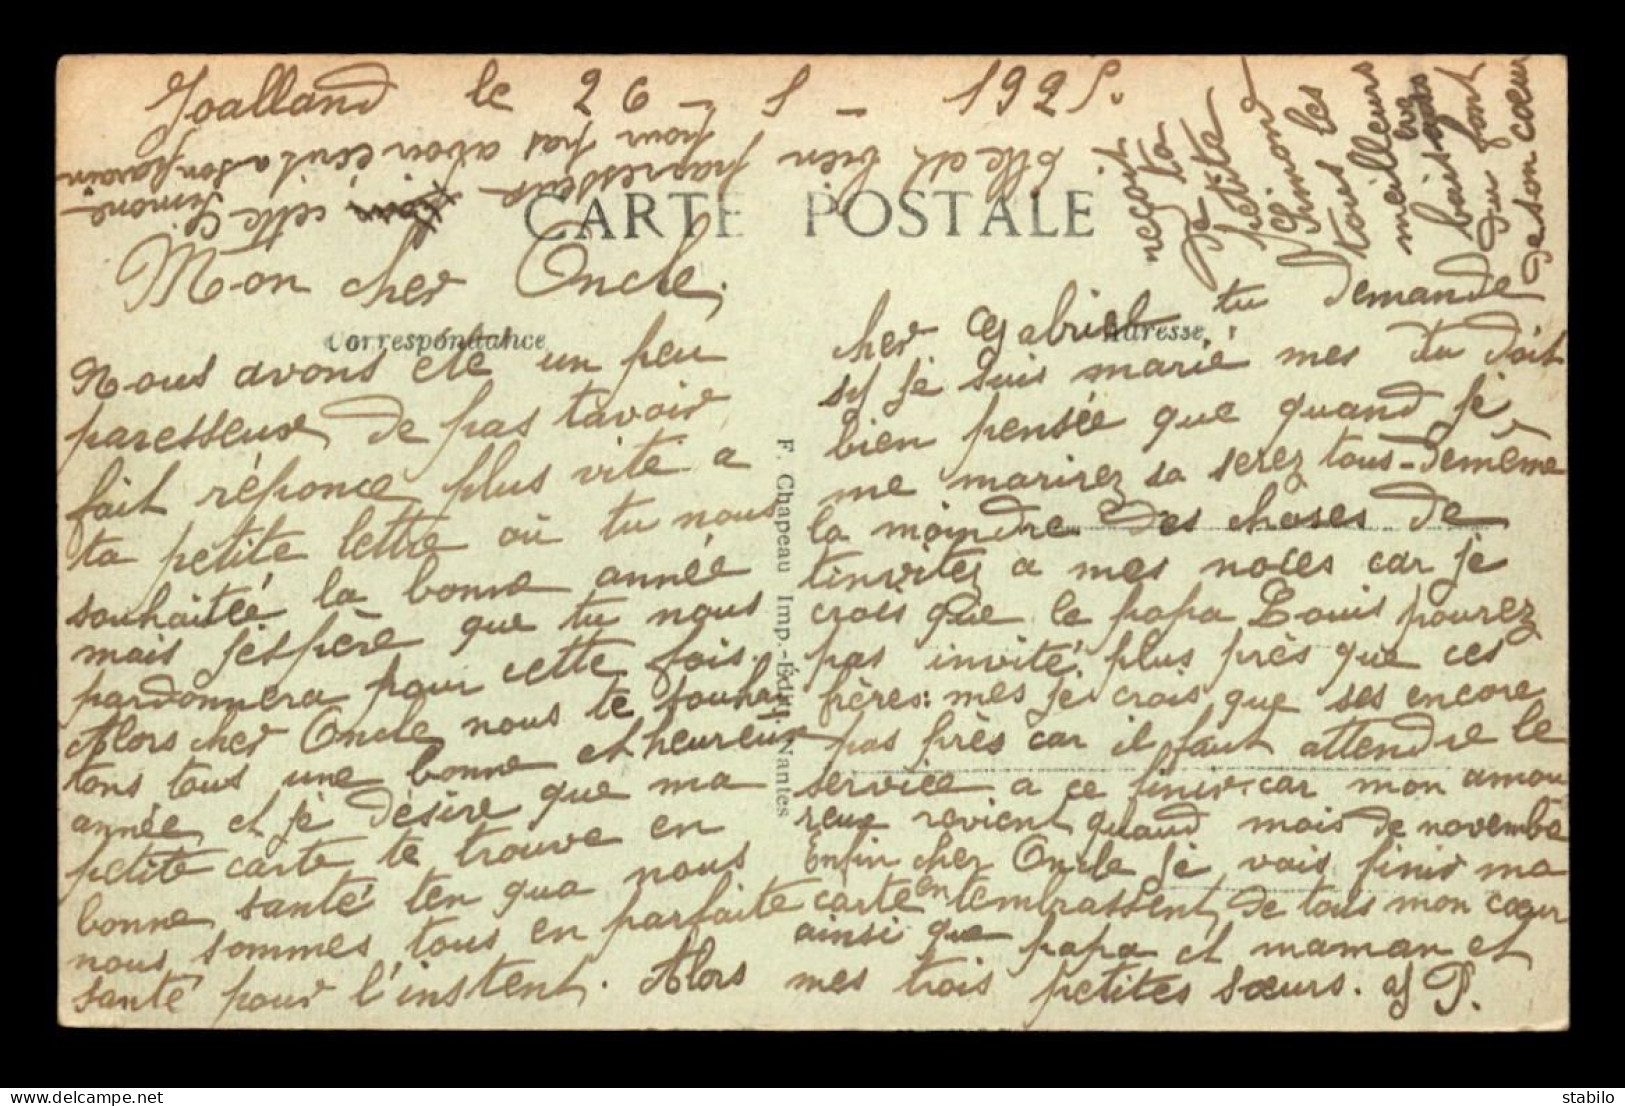 Joalland le 26 - 1 - 1925.
CARTE POSTALE
Mon cher Oncle,
Correspondance
Nous avons été un peu
paresseux de pas tavoir
fait réponce plus vite a
ta petite lettre où tu nous
souhaiteé la bonne année
mais j'espère que tu nous
pardonnera pour cette fois.
Alors cher Oncle nous te souhai
tons tous une bonne et heureux
année et je désire que ma
petite carte te trouve en
bonne santé ten qua nous
nous sommes tous en parfaite
santé pour l'instent. Alors
F. Chapeau Imp.-Édit. Nantes
Adresse
cher Gabriel tu demande
sy je suis marié mes tu doit
bien pensée que quand je
me marirez sa serez tous-demême
la moindre des choses de
tinvitez a mes noces car je
crois que le papa Louis pourez
pas invité plus près que ces
frères: mes je crois que ses encore
pas près car il faut attendre le
service a ce finir car mon amou
reux revient quand mois de novembe
Enfin cher Oncle je vais finir ma
carte en tembrassent de tous mon cœur
ainsi que papa et maman et
mes trois petites sœurs. G P.
reçoit
de ta
petite
Simone les
tous les
meilleurs
baisers
qui font
de son cœur
Elle est bien paresseuse cette Simone
pour pas avoir écrit a son parain